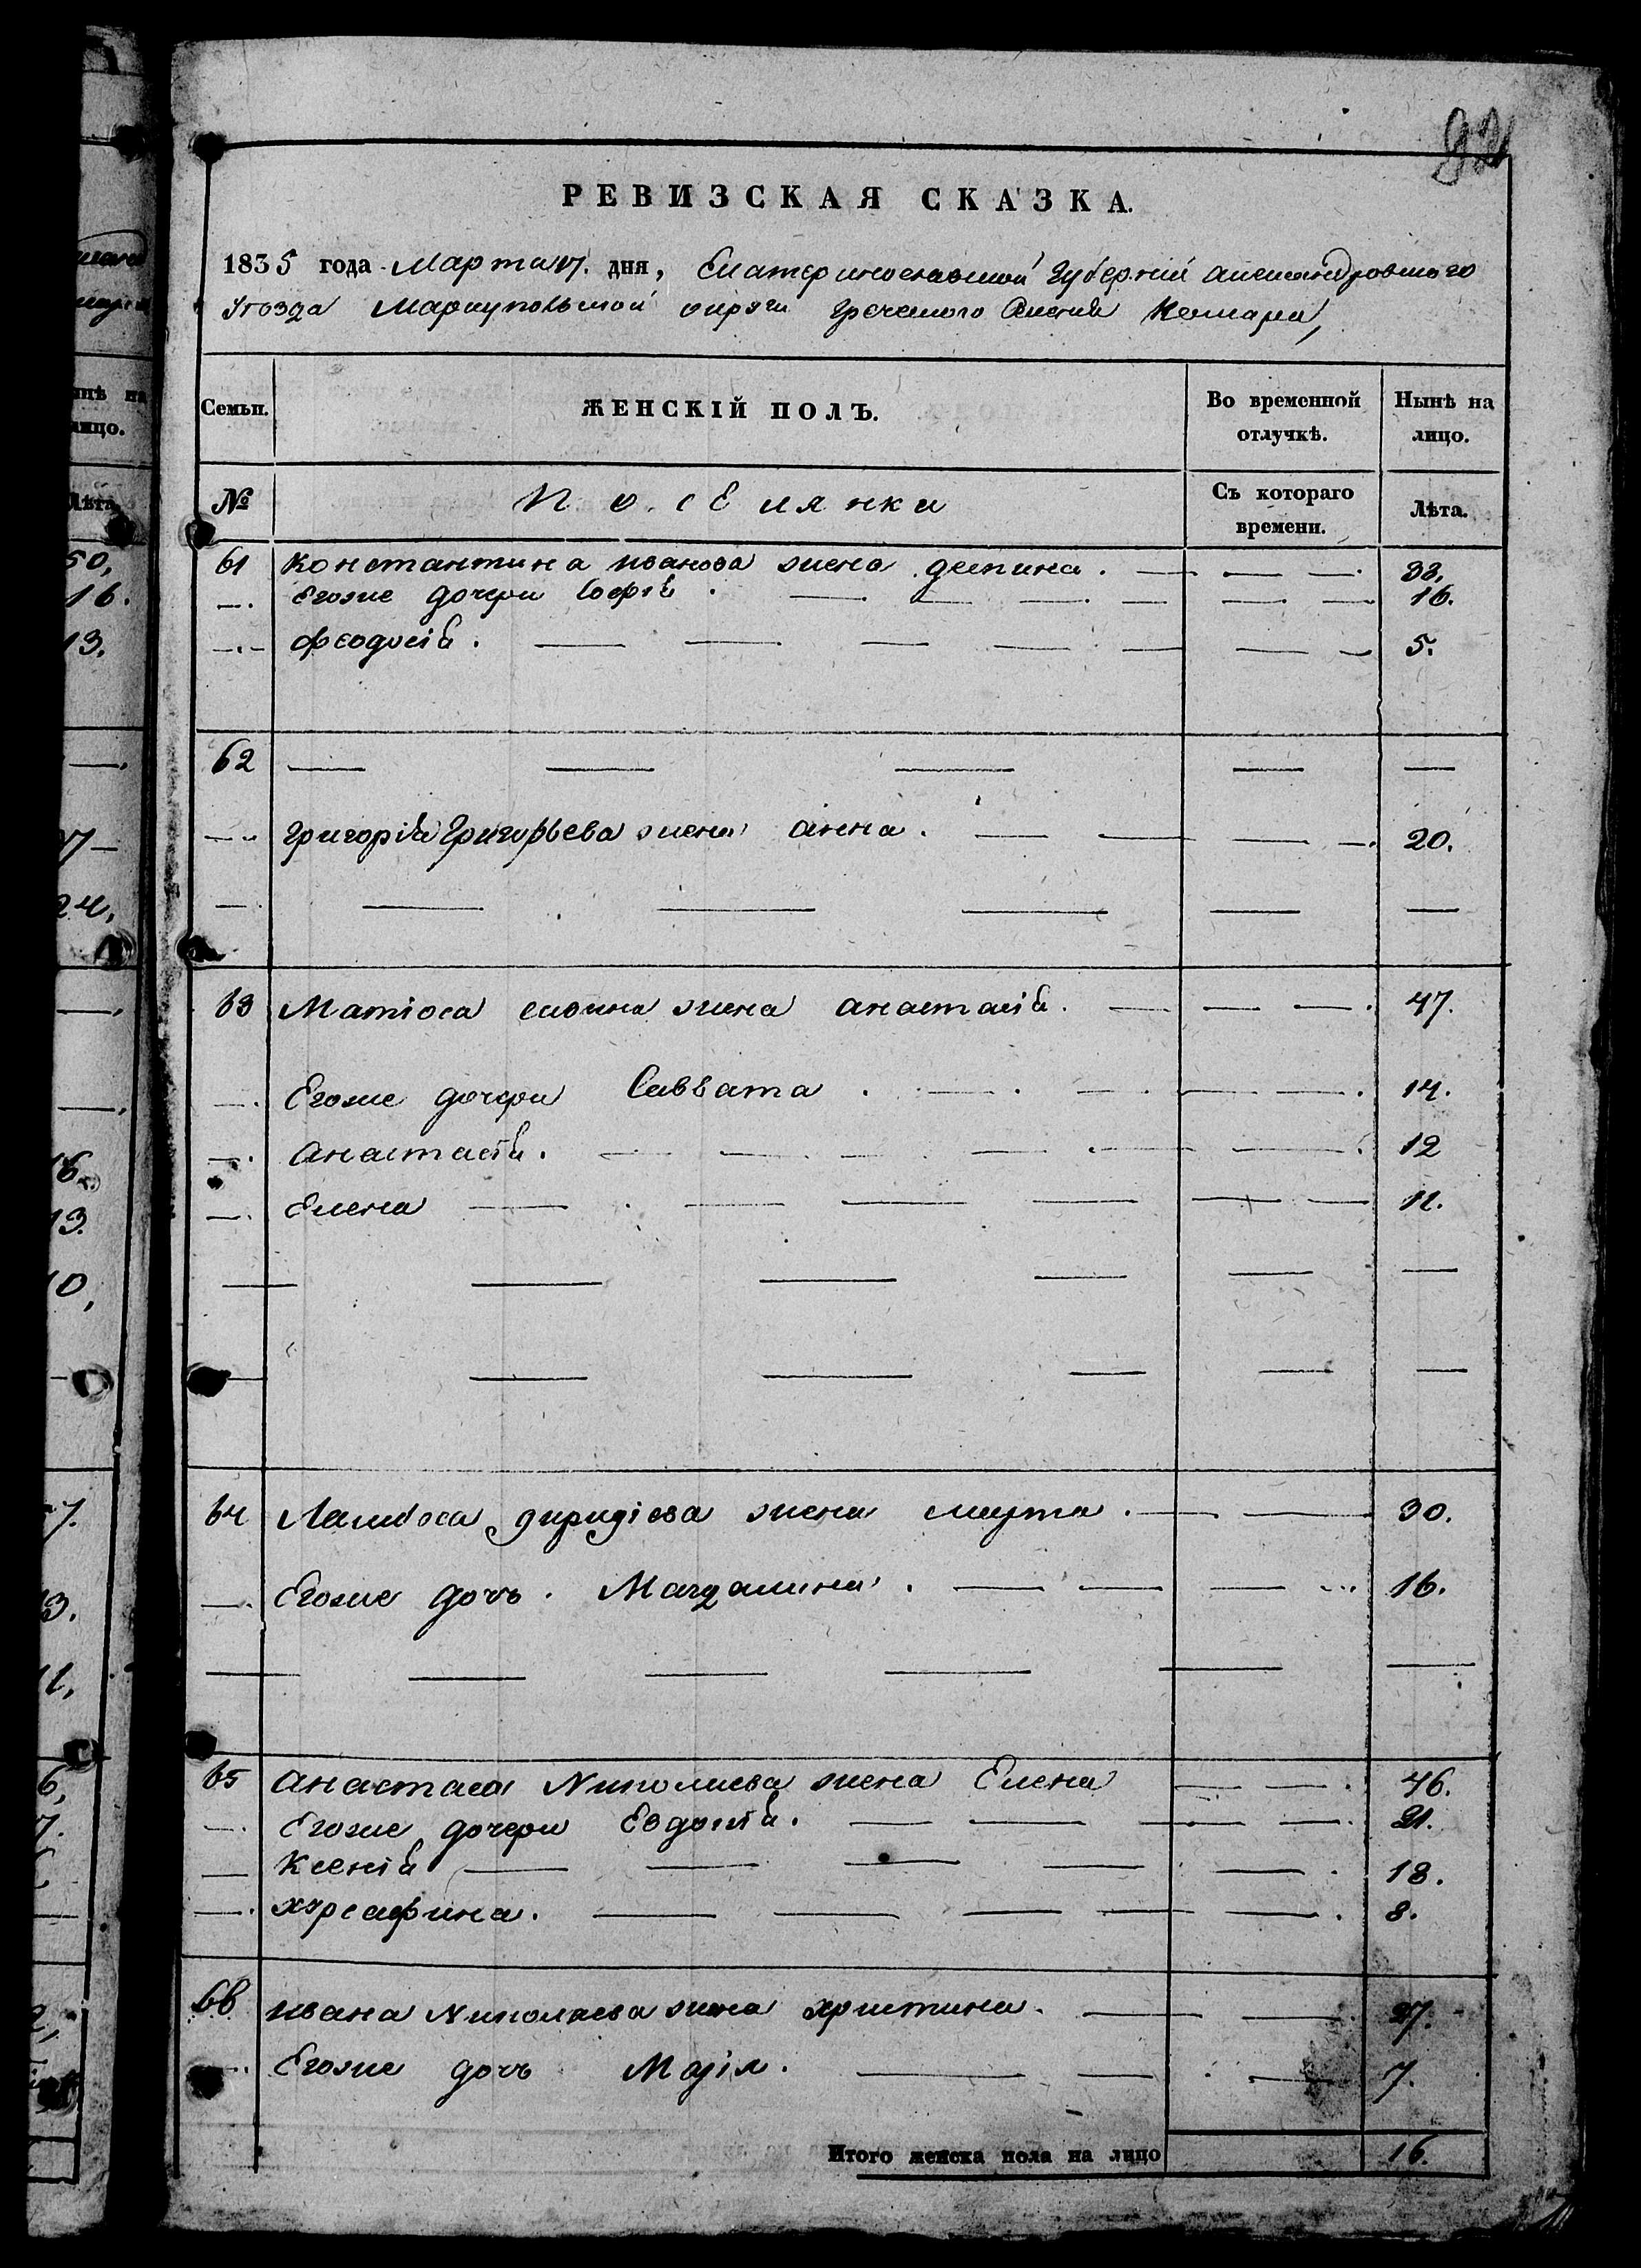 92
РЕВИЗСКАЯ СКАЗКА.
1835 года Марта 17. дня, Екатеринославской Губерній александровскаго
Уѣзда Мариупольской округи Греческого Селенія Комара,
Семьи. ЖЕНСКІЙ ПОЛЪ. Во временной отлучкѣ. Нынѣ на лицо.
№ Поселянки Съ котораго времени. Лѣта.
61 Константина иванова жена деспина. 33.
Егоже дочери Софія. 16.
Феодосія. 5.
62
Григорія Григорьева жена анна. 20.
63 Матіоса савина жена анастасія. 47.
Егоже дочери Саввата. 14.
анастасія. 12
Елена 11.
64 Ламбоса жена 30.
Егоже дочь. Магдалина. 16.
65 анастаса Николаева жена Елена 46.
Егоже дочери Евдокія. 21.
Ксенія 18.
8.
66 ивана Николаева жена христина. 27.
Егоже дочь Марія. 7.
Итого женска пола на лицо 16.